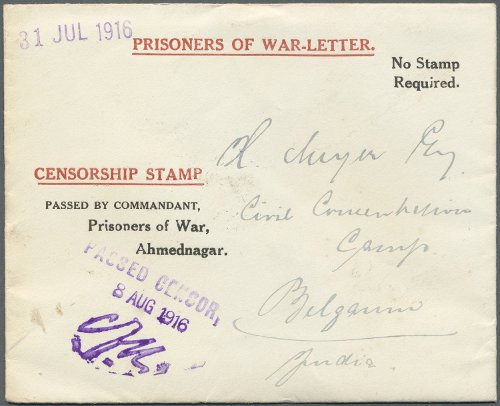 31 JUL 1916
PRISONERS OF WAR-LETTER.
No Stamp
Required.
CENSORSHIP STAMP
PASSED BY COMMANDANT,
Prisoners of War,
Ahmednagar.
PASSED CENSOR,
8 AUG 1916
Civil Concentration
Camp
Belgaum
India